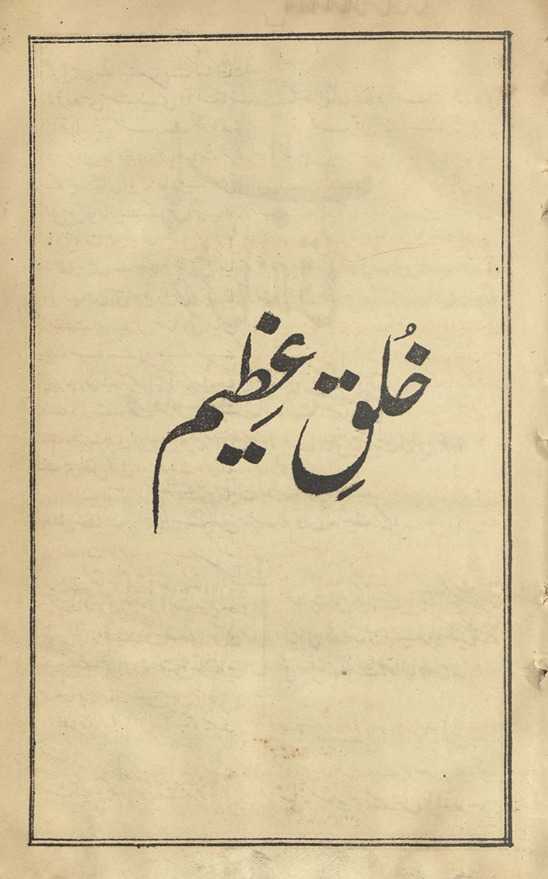 خُلقِ عظیم